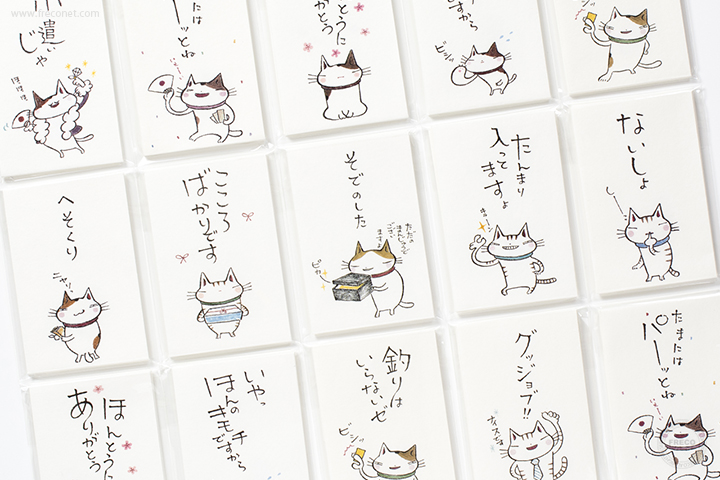 www.freconet.com
遣いじゃ
ほほほ
たまには
パーッとね
ほんとうに
ありがとう
ですから
ビシッ
ビシッ
へそくり
ニヤリ
こころ
ばかりです
そでのした
ピカー
たんまり
入って
ますよ
キラーン
ないしょ
しー
ほんとうに
ありがとう
いやっ
ほんの
キモチ
ですから
釣りは
いらないゼ
ビシッ
グッジョブ!!
たまには
パーッとね
FRECO